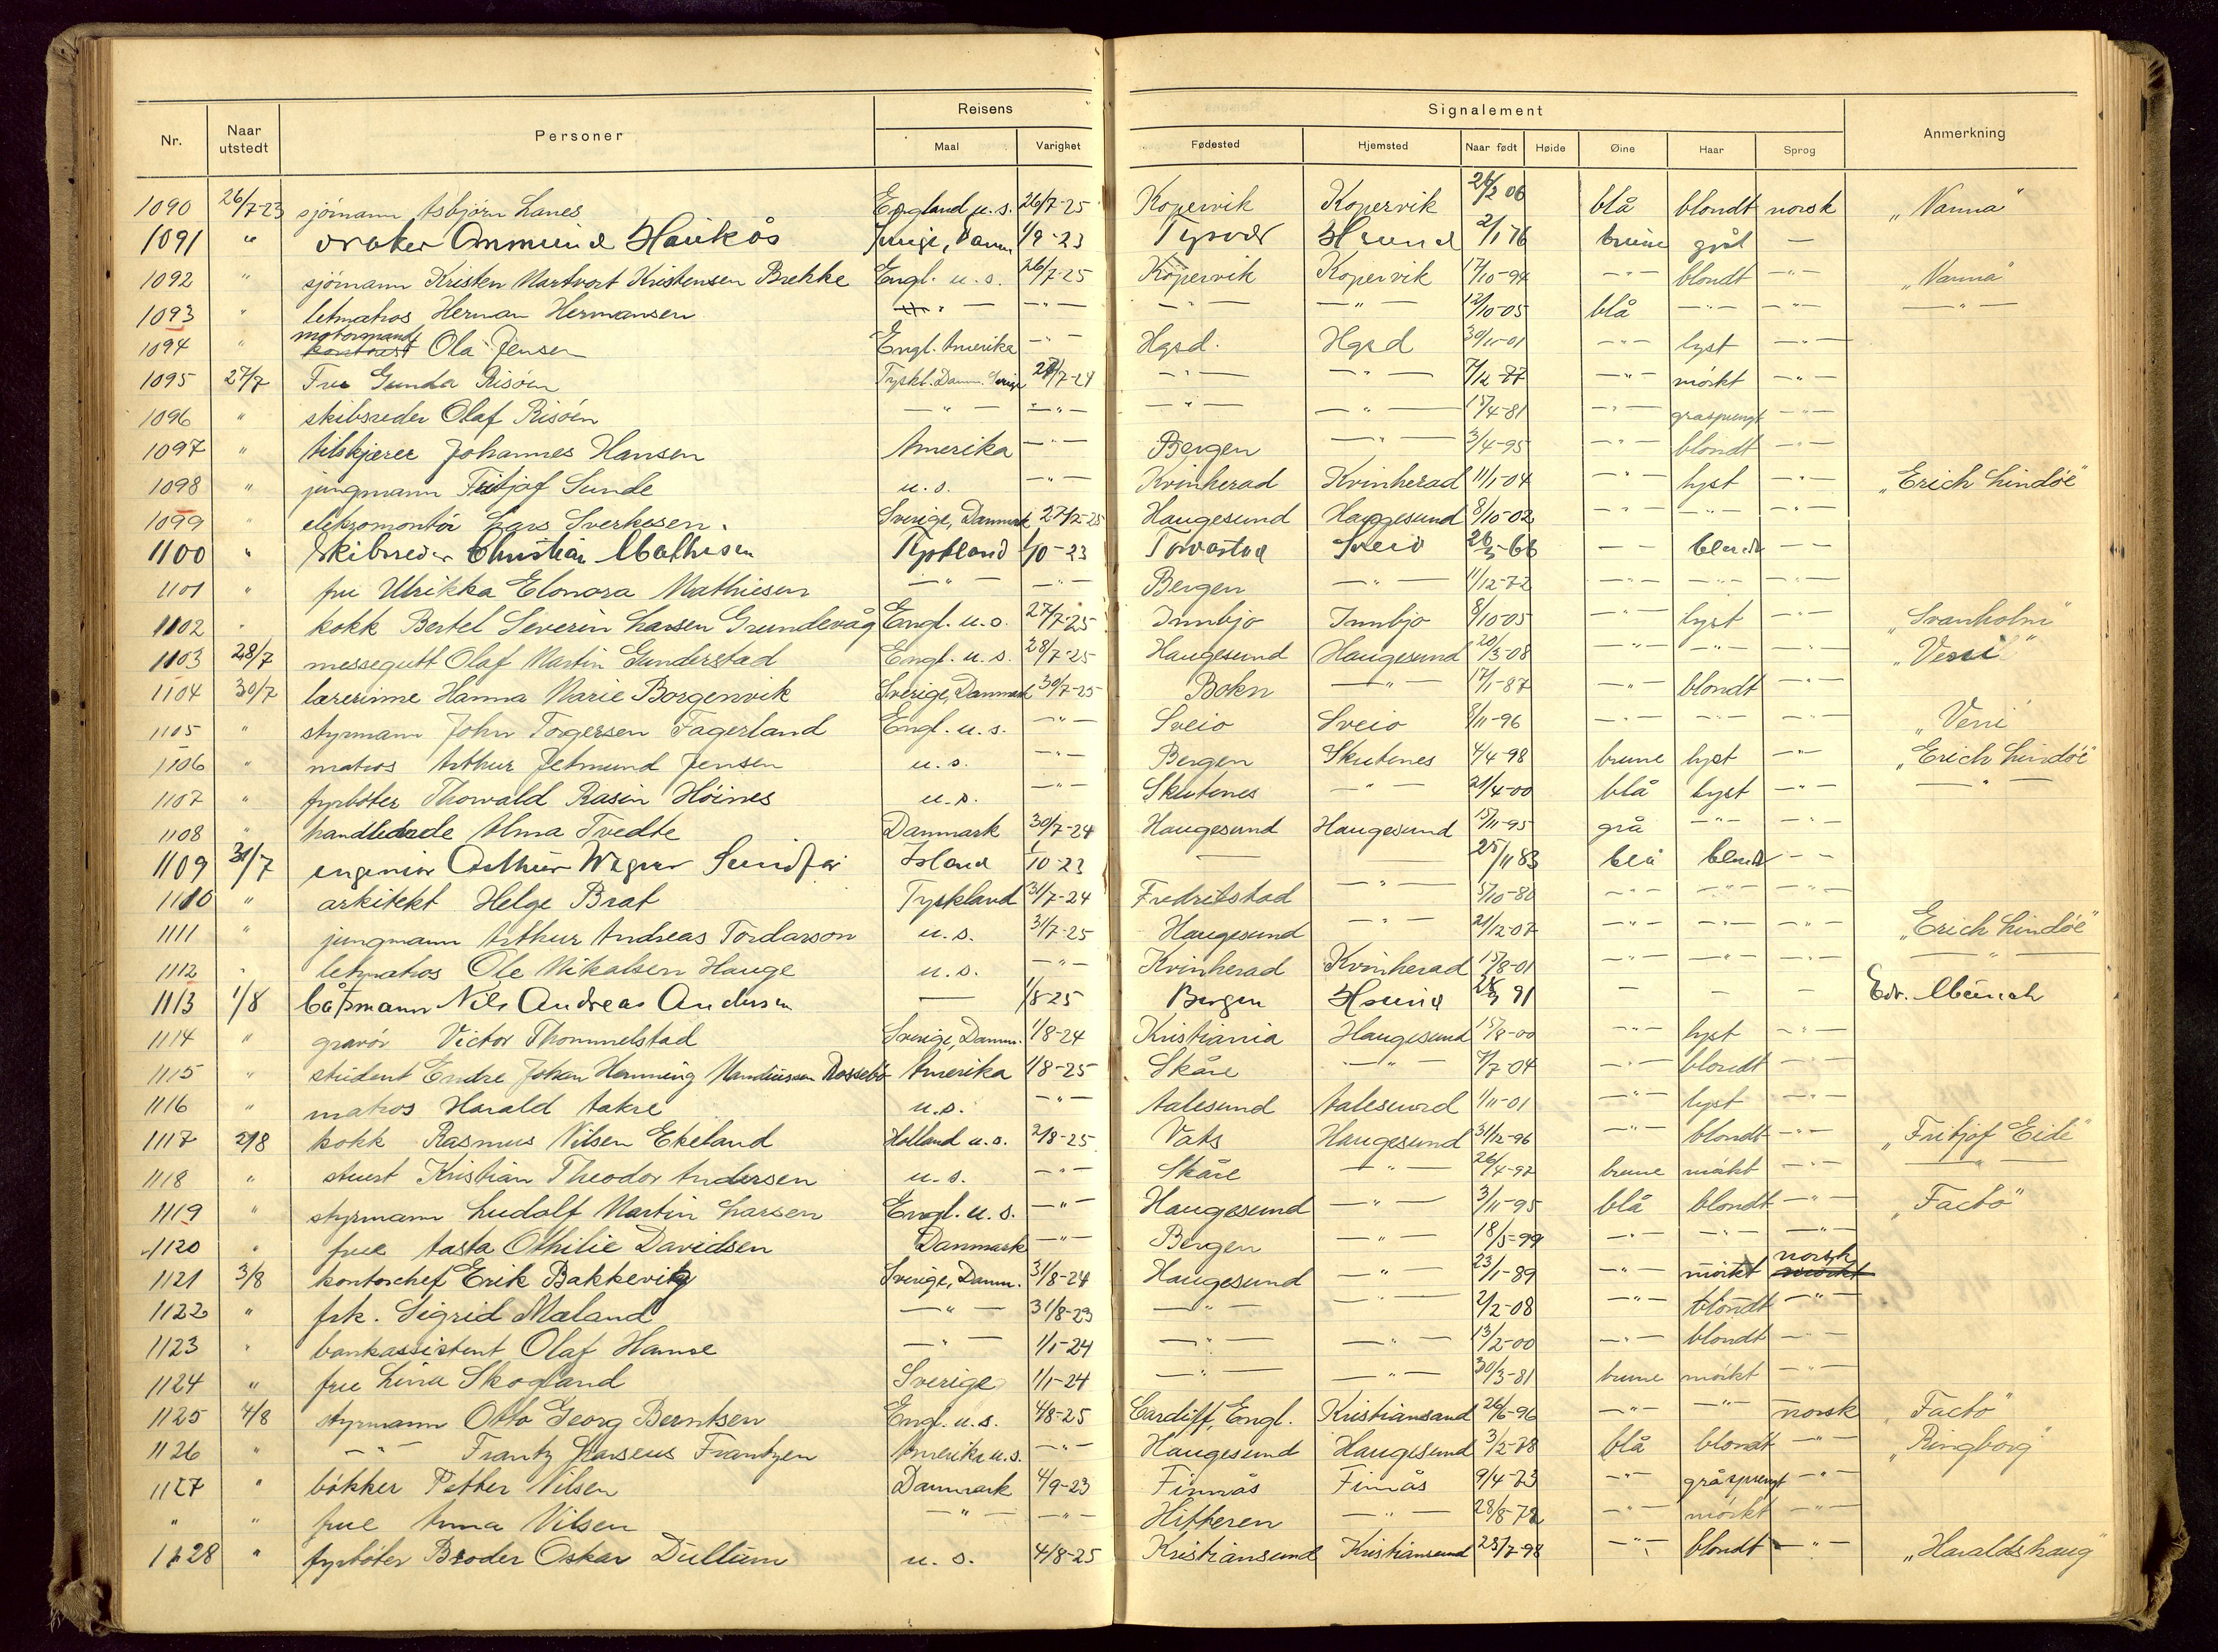 Nr. Naar utstedt Personer Reisens Maal Varighet Signalement Fødested Hjemsted Naar født Høide Øine Haar Sprog Anmerkning
1090 26/7-23 sjömann Asbjörn Lanes England u.s. 26/7-25 Kopervik Kopervik 24/2 06 blå blondt norsk „Nanna"
1091 " vraker Ommund Haukås Sverige, Danm 1/9-23 Tysvær Hsund 2/1 76 brune grål —
1092 " sjömann Kristen Martvort Kristensen Brekke Engl. u.s. 26/7-25 Kopervik Kopervik 17/10-94 —"— blondt —"— „Nanna"
1093 " letmatros Herman Hermansen —"— —"— —"— —"— 12/10-05 blå —"— —"— —"—
1094 " motormand Ola Jensen Engl. Amerika —"— Hgsd. Hgsd 30/11-01 —"— lyst —"—
1095 27/7 Fru Gunda Risöen Tyskl. Danm. Sverige 27/7-24 —"— —"— 7/12-77 —"— mörkt —"—
1096 " skibsreder Olaf Risöen —"— —"— —"— —"— 15/4-81 —"— gråsprengt —"—
1097 " tilskjærer Johannes Hansen Amerika —"— Bergen —"— 3/4-95 —"— blondt —"—
1098 " jungmann Fritjof Sunde u.s. —"— Kvinherad Kvinherad 11/1-04 —"— lyst —"— „Erich Lindöe"
1099 " elektromontör Lars Sverkesen. Sverige, Danmark 27/7-25 Haugesund Haugesund 8/10-02 —"— —"— —"—
1100 " Skibsreder Christian Mathisen Tyskland 1/10-23 Torvastad Sveio 26/5-66 — — blondt — —
1101 " fru Ulrikka Elonora Mathiesen —"— —"— Bergen —"— 11/12-72 —"— —"— —"—
1102 " kokk Bertel Severin Larsen Grundevåg Engl. u.s. 27/7-25 Innbjo Innbjo 8/10-05 —"— lyst —"— „Svanholm"
1103 28/7 messegutt Olaf Martin Gunderstad Engl. u.s. 28/7-25 Haugesund Haugesund 20/3-08 —"— —"— —"— „Verii"
1104 30/7 lærerinne Hanna Marie Borgenvik Sverige, Danmark 30/7-25 Bokn —"— 17/1-87 —"— blondt —"—
1105 " styrmann John Torgersen Fagerland Engl. u.s. —"— Sveio Sveio 8/11-96 —"— —"— —"— „Veni"
1106 " matros Arthur Jetmund Jensen u.s. —"— Bergen Skutenes 4/4-98 brune lyst —"— „Erich Lindöe"
1107 " fyrböter Thorvald Rasin Höines u.s. —"— Skutenes —"— 21/4-00 blå lyst —"— —"—
1108 " handlende Alma Tvedte Danmark 30/7-24 Haugesund Haugesund 15/11-95 grå —"— —"—
1109 31/7 engeniør Arthur Island 1/10-23 — 25/11 83 blå blondt — —
1110 " arkitekt Helge Brat Tyskland 31/7-24 Fredrikstad —"— 5/10-80 —"— —"— —"—
1111 " jungmann Arthur Andreas Tordarson u.s. 31/7-25 Haugesund —"— 21/12-07 —"— —"— —"— „Erich Lindöe"
1112 " letmatros Ole Nikalsen Hauge u.s. —"— Kvinherad Kvinherad 15/8-01 —"— —"— —"— —"—
1113 1/8 båtsmann Nils Andreas Andersen — 1/8-25 Bergen Hsund 28/3 91 — — — Edv. Münch
1114 " gravör Victor Thommelstad Sverige, Danm. 1/8-24 Kristiania Haugesund 15/8-00 —"— lyst —"—
1115 " student Endre Johan Henning Rossebö Amerika 1/8-25 Skåre —"— 7/7-04 —"— blondt —"—
1116 " matros Harald Aakre u.s. —"— Aalesund Aalesund 1/11-01 —"— lyst —"—
1117 2/8 kokk Rasmus Nilsen Ekeland Holland u.s. 2/8-25 Vats Haugesund 31/12-96 —"— blondt —"— „Fritjof Eide"
1118 " stuert Kristian Theodor Andersen u.s. —"— Skåre —"— 26/4-97 brune mörkt —"— —"—
1119 " styrmann Ludolf Martin Larsen Engl. u.s. —"— Haugesund —"— 3/11-95 blå blondt —"— „Facto"
1120 " frue Aasta Othilie Davidsen Danmark —"— Bergen —"— 18/5-99 —"— —"— —"—
1121 3/8 kontorchef Erik Bakkevig Sverige, Danm. 31/8-24 Haugesund —"— 23/1-89 —"— mörkt norsk
1122 " frk. Sigrid Mæland —"— 31/8-23 —"— —"— 2/2-08 —"— blondt —"—
1123 " bankassistent Olaf Hamre —"— 1/1-24 —"— —"— 13/2-00 —"— blondt —"—
1124 " frue Lina Skogland Sverige 1/1-24 —"— —"— 30/3-81 brune mörkt —"—
1125 4/8 styrmann Otto Georg Berntsen Engl. u.s. 4/8-25 Cardiff, Engl. Kristiansand 26/6-96 —"— —"— norsk „Facto"
1126 " —"— Frantz Larseus Frantzen Amerika u.s. —"— Haugesund Haugesund 3/2-78 blå blondt —"— „Ringborg"
1127 " bökker Petter Nilsen Danmark 4/9-23 Finnås Finnås 9/4-73 —"— gråsprengt —"—
" " frue Anna Nilsen —"— —"— Hitteren —"— 28/8-72 —"— mörkt —"—
1128 " fyrböter Broder Oskar Dullum u.s. 4/8-25 Kristiansund Kristiansund 25/7-98 —"— blondt —"— „Haraldshaug"